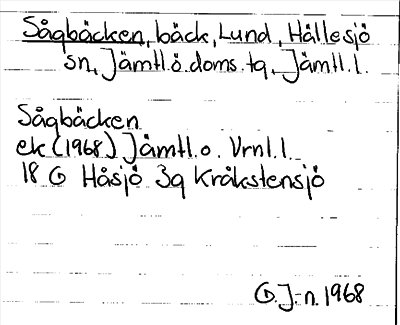 Sågbäcken, bäck, Lund, Hällesjö
sn, Jämtl.ö.doms.tg, Jämtl.l.
Sågbäcken
ek (1968) Jämtl.o. Vrnl.l.
18 G Håsjö 3g Kråkstensjö
G.J:-n. 1968